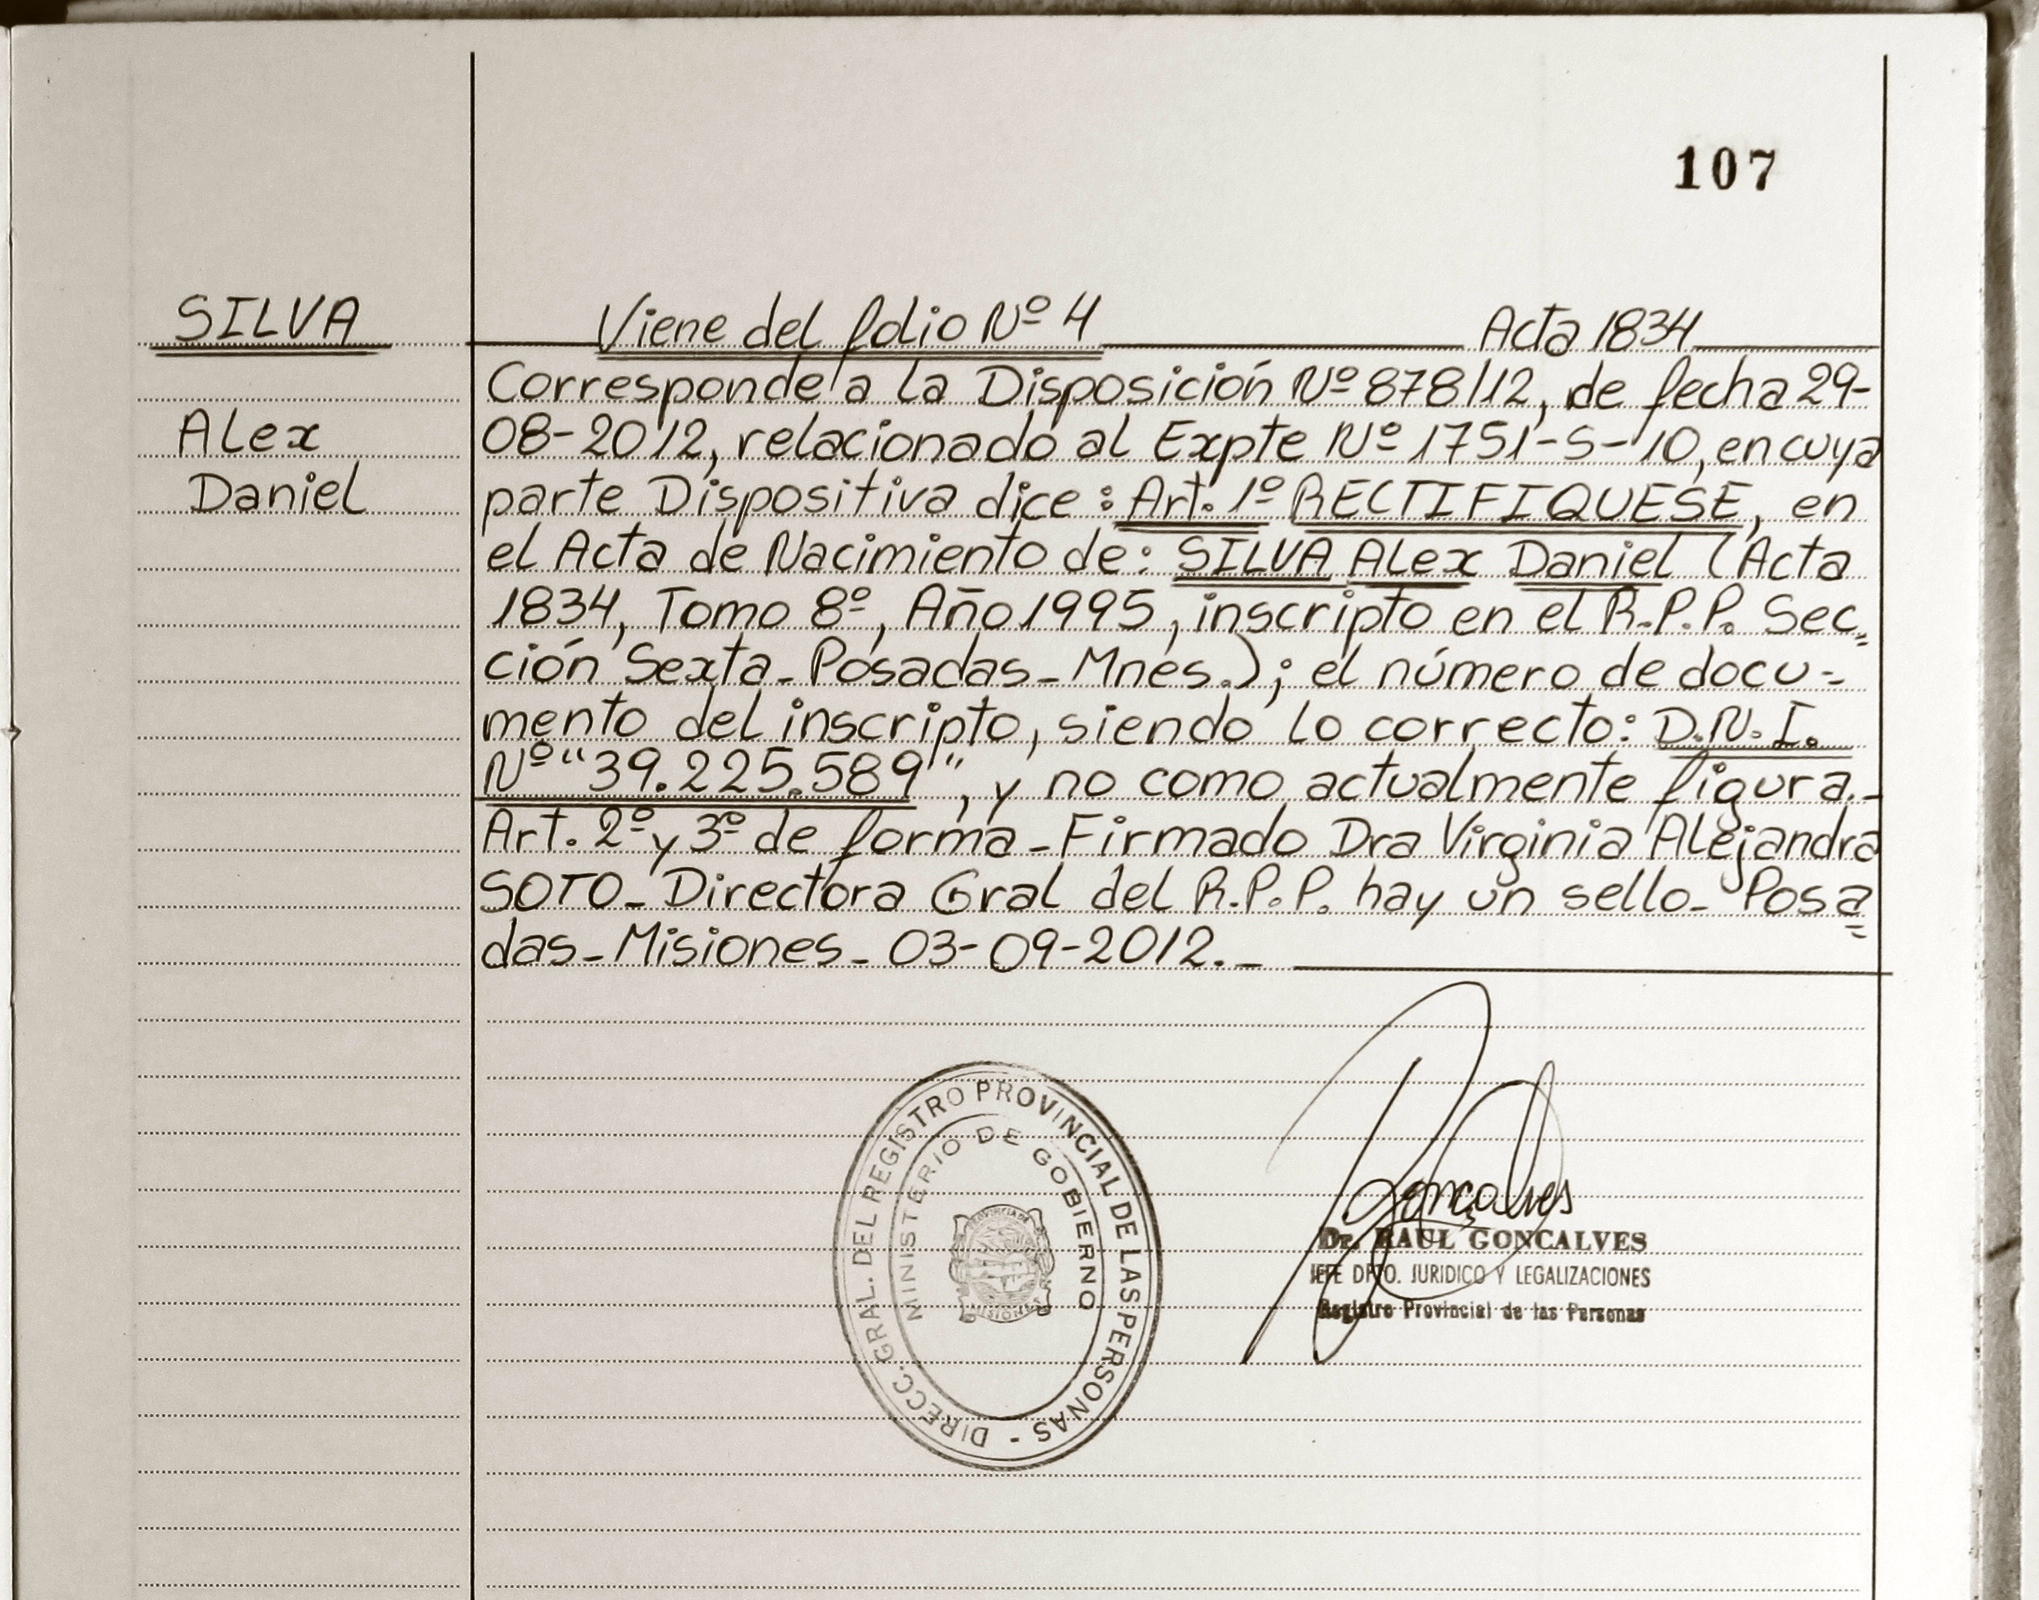 107
SILVA
Viene del folio Nº 4 Acta 1834
Corresponde a la Disposición Nº 878/12, de fecha 29-
Alex
08-2012, relacionado al Expte Nº 1751-S-10, en cuya
Daniel
parte Dispositiva dice: Art. 1º RECTIFIQUESE, en
el Acta de Nacimiento de: SILVA Alex Daniel (Acta
1834, Tomo 8º, Año 1995, inscripto en el R.P.P. Sec=
ción Sexta-Posadas-Mnes.); el número de docu-
mento del inscripto, siendo lo correcto: D.N.I.
Nº "39.225.589", y no como actualmente figura.-
Art. 2º y 3º de forma-Firmado Dra Virginia Alejandra
SOTO-Directora Gral del R.P.P. hay un sello- Posa=
das-Misiones- 03-09-2012.-
DIRECC. GRAL. DEL REGISTRO PROVINCIAL DE LAS PERSONAS -
MINISTERIO DE GOBIERNO
PROVINCIA DE
MISIONES
Goncalves
Dr. RAUL GONCALVES
JEFE DPTO. JURIDICO Y LEGALIZACIONES
Registro Provincial de las Personas